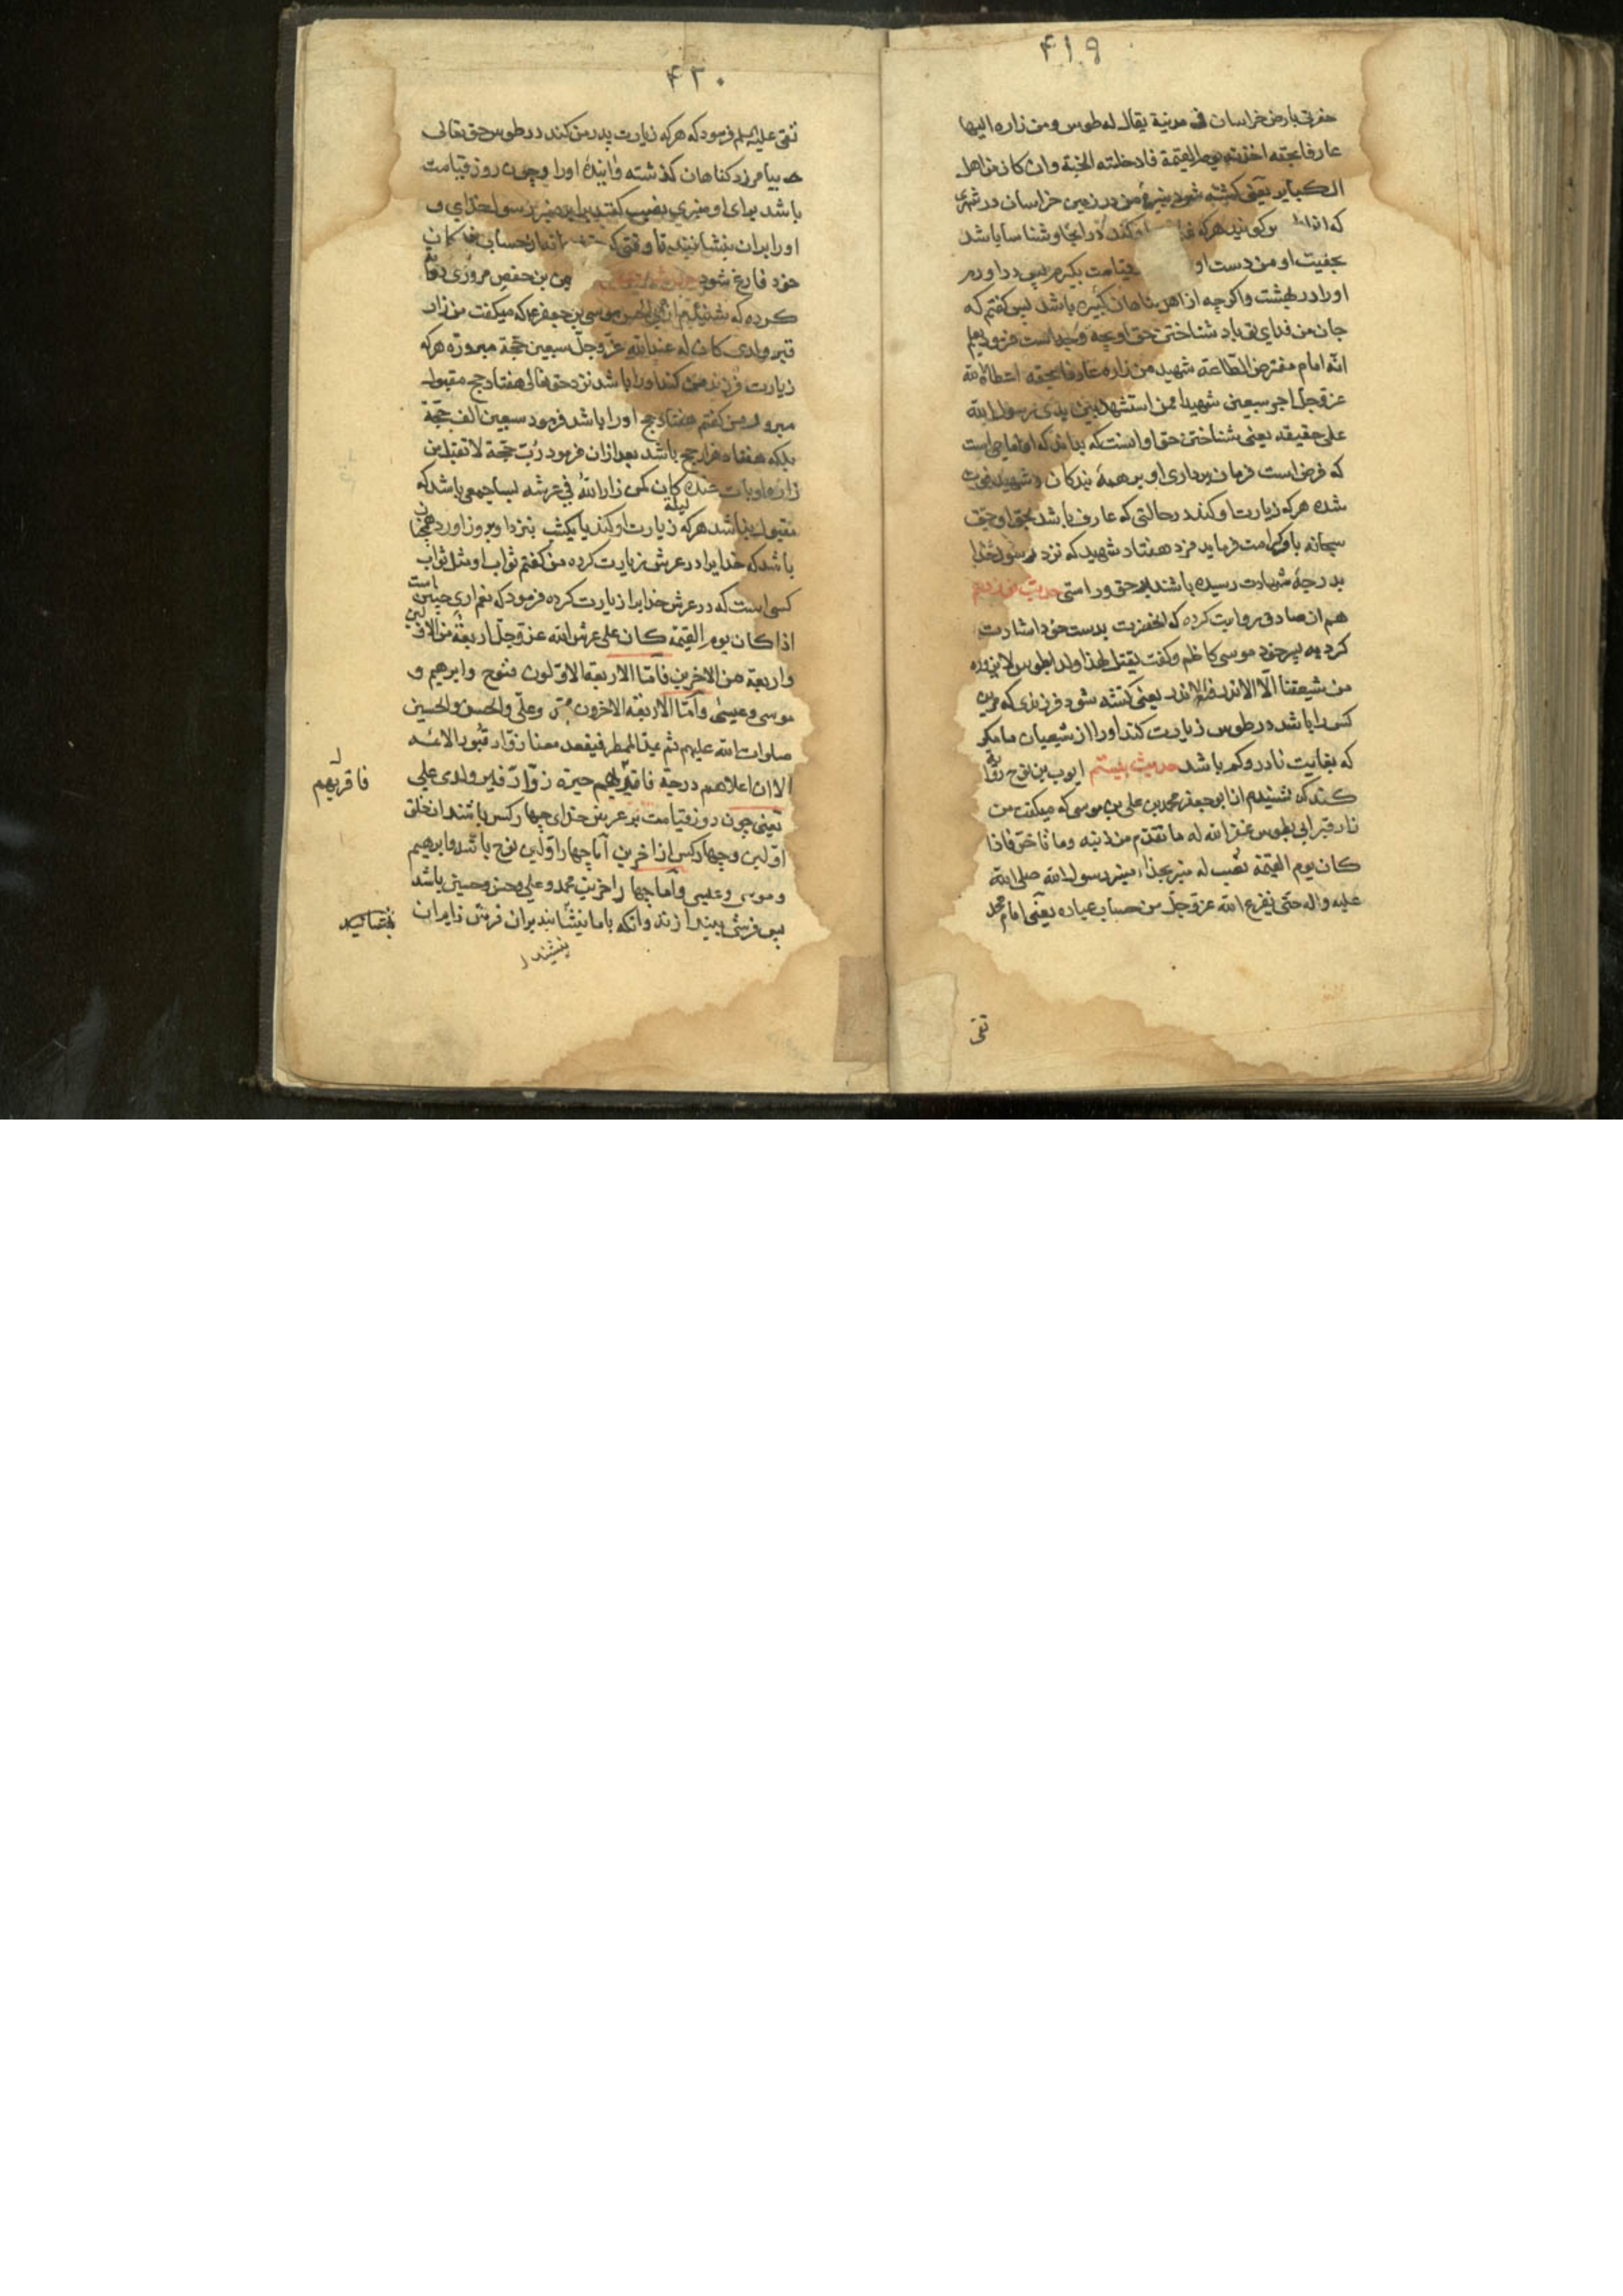 ۴۱۹
حفرتی بارض خراسان فی مدینة یقال له طوس ومن زاره الیها
عارفا بحقه اخذته یوم القیمة فادخلته الجنة وان کان من اهل
الکبایر یعنی کشته شود نبیرهٔ من در زمین خراسان در شهری
که انرا طوس کویند هرکه زیارت او کند در انجا و شناسا باشد
بحقیت او من دست او قیامت بکیرم پس در اورم
اورا در بهشت واکرچه از اهل کناهان کبیره باشد پس کفتم که
جان من فدای تو باد شناختن حق او چه چیز است فرمود یعلم
انّه امام مفترض الطّاعة شهید من زاره عارفا بحقه اعطاه الله
عزوجل اجر سبعین شهیدا ممن استشهد بین یدی رسول الله
علی حقیقه یعنی شناختن حق او انست که بداند که او امامی است
که فرض است فرمان برداری او بر همهٔ بندکان و شهید
شده هرکه زیارت او کند در حالتی که عارف باشد بحق او حق
سبحانه باو کرامت فرماید مزد هفتاد شهید که نزد رسول خدا
بدرجهٔ شهادت رسیده باشند بر حق و راستی حدیث نوزدهم
هم از صادق روایت کرده که انحضرت بدست خود اشارت
کرد به پسر خود موسی کاظم وکفت یقتل لهذا ولد بطوس لا یزوره
من شیعتنا الّا الاندر فالاندر یعنی کشته شود فرزندی که مر این
کس را باشد در طوس زیارت نکند اورا از شیعیان ما مکر
که بغایت نادر وکم باشد حدیث بیستم ایوب بن نوح روایة
کند که شنیدم از ابو جعفر محمد بن علی بن موسی که میکفت من
زار قبر ابی بطوس غفر الله له ما تقدّم من ذنبه وما تاخّر فاذا
کان یوم القیمة نصب له منبر بحذاء منبر رسول الله صلی الله
علیه واله حتی یفرغ الله عزوجل من حساب عباده یعنی امام محمد
تقی
۴۲۰
تقی علیه السلم فرمود که هرکه زیارت پدر من کند در طوس حق تعالی
بیامرزد کناهان کذشته واینده اورا وچون روز قیامت
باشد برای او منبری نصب کنند برابر منبر رسول خدای و
اورا بران بنشانند تا وقتی که از حساب بندکان
خود فارغ شود بن حفص مروزی روایة
کرده که شنیدم از ابی الحسن موسی بن جعفر که میکفت من زار
قبر ولدی کان له عند الله عزّوجلّ سبعین حجّة مبرورة هرکه
زیارت فرزند من کند اورا باشد نزد حق تعالی هفتاد حج مقبول
مبرور من کفتم هفتاد حج اورا باشد فرمود سبعین الف حجّة
بلکه هفتاد هزار حج باشد بعد ازان فرمود ربّ حجّة لا تقبل من
زاره او بات عنده لیلة کان کمن زار الله فی عرشه بسا حجی باشد که
مقبول نباشد هرکه زیارت او کند یا یکشب نزد او بروز اورد همچنان
باشد که خدایرا در عرش زیارت کرده من کفتم ثواب او مثل ثواب
کسی است که در عرش خدایرا زیارت کرده فرمود که نعم اری چنین است
اذا کان یوم القیمة کان علی عرش الله عزوجل اربعة من الاولین
واربعة من الاخرین فامّا الاربعة الاوّلون فنوح وابرهیم و
موسی وعیسی وامّا الاربعة الاخرون محمّد وعلی والحسن والحسین
صلوات الله علیهم ثم یمدّ المطمر فیقعد معنا زوّار قبور الائمه
الا ان اعلاهم درجة فاقربهم حبوة زوّار قبر ولدی علی
فاقربهم
یعنی چون روز قیامت بر عرش خدای چهار کس باشند از خلق
اوّلین وچهار کس از اخرین اما چهار اوّلین نوح باشد وابرهیم
وموسی وعیسی واما چهار اخرین محمد وعلی وحسن وحسین باشد
پس فرشی بیندازند وانکه با ما بنشانند بران فرش زایران
بنشینند